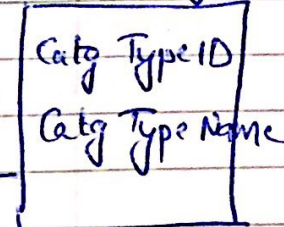 Catg Type ID
Catg Type Name